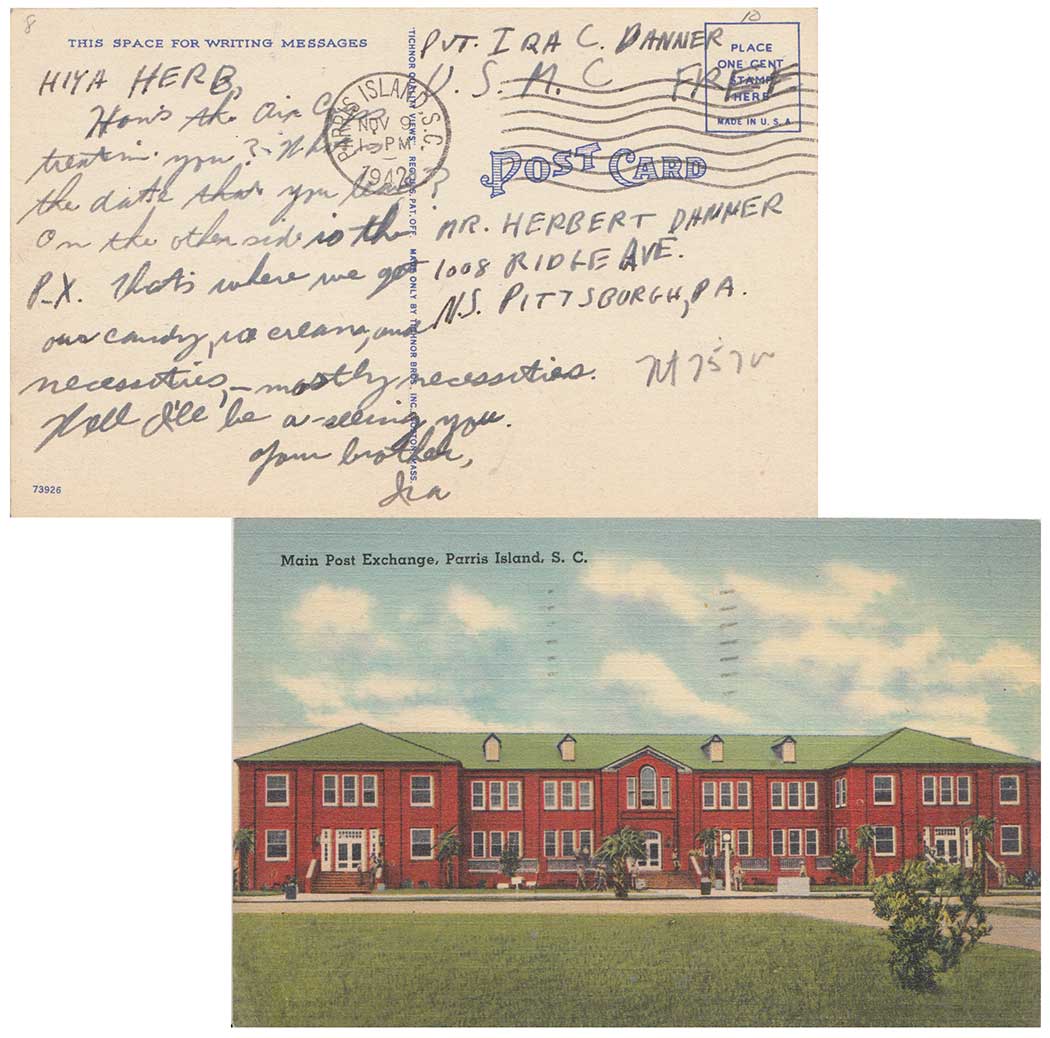 8
10
THIS SPACE FOR WRITING MESSAGES
HIYA HERB,
How's the Air Corps
treatin you? When is
the date that you leave?
On the other side is the
P-X. That's where we get
our candy, ice cream, and
necessities, – mostly necessities.
Well I'll be a-seeing you.
Your brother,
Ira
73926
"TICHNOR QUALITY VIEWS" REG. U.S. PAT. OFF. MADE ONLY BY TICHNOR BROS., INC., BOSTON, MASS.
PARRIS ISLAND, S.C.
NOV 9
1 - PM
1942
PVT. IRA C. DANNER
U. S. M. C FREE
PLACE
ONE CENT
STAMP
HERE
MADE IN U.S.A
POST CARD
MR. HERBERT DANNER
1008 RIDGE AVE.
N.S. PITTSBURGH, PA.
Main Post Exchange, Parris Island, S. C.